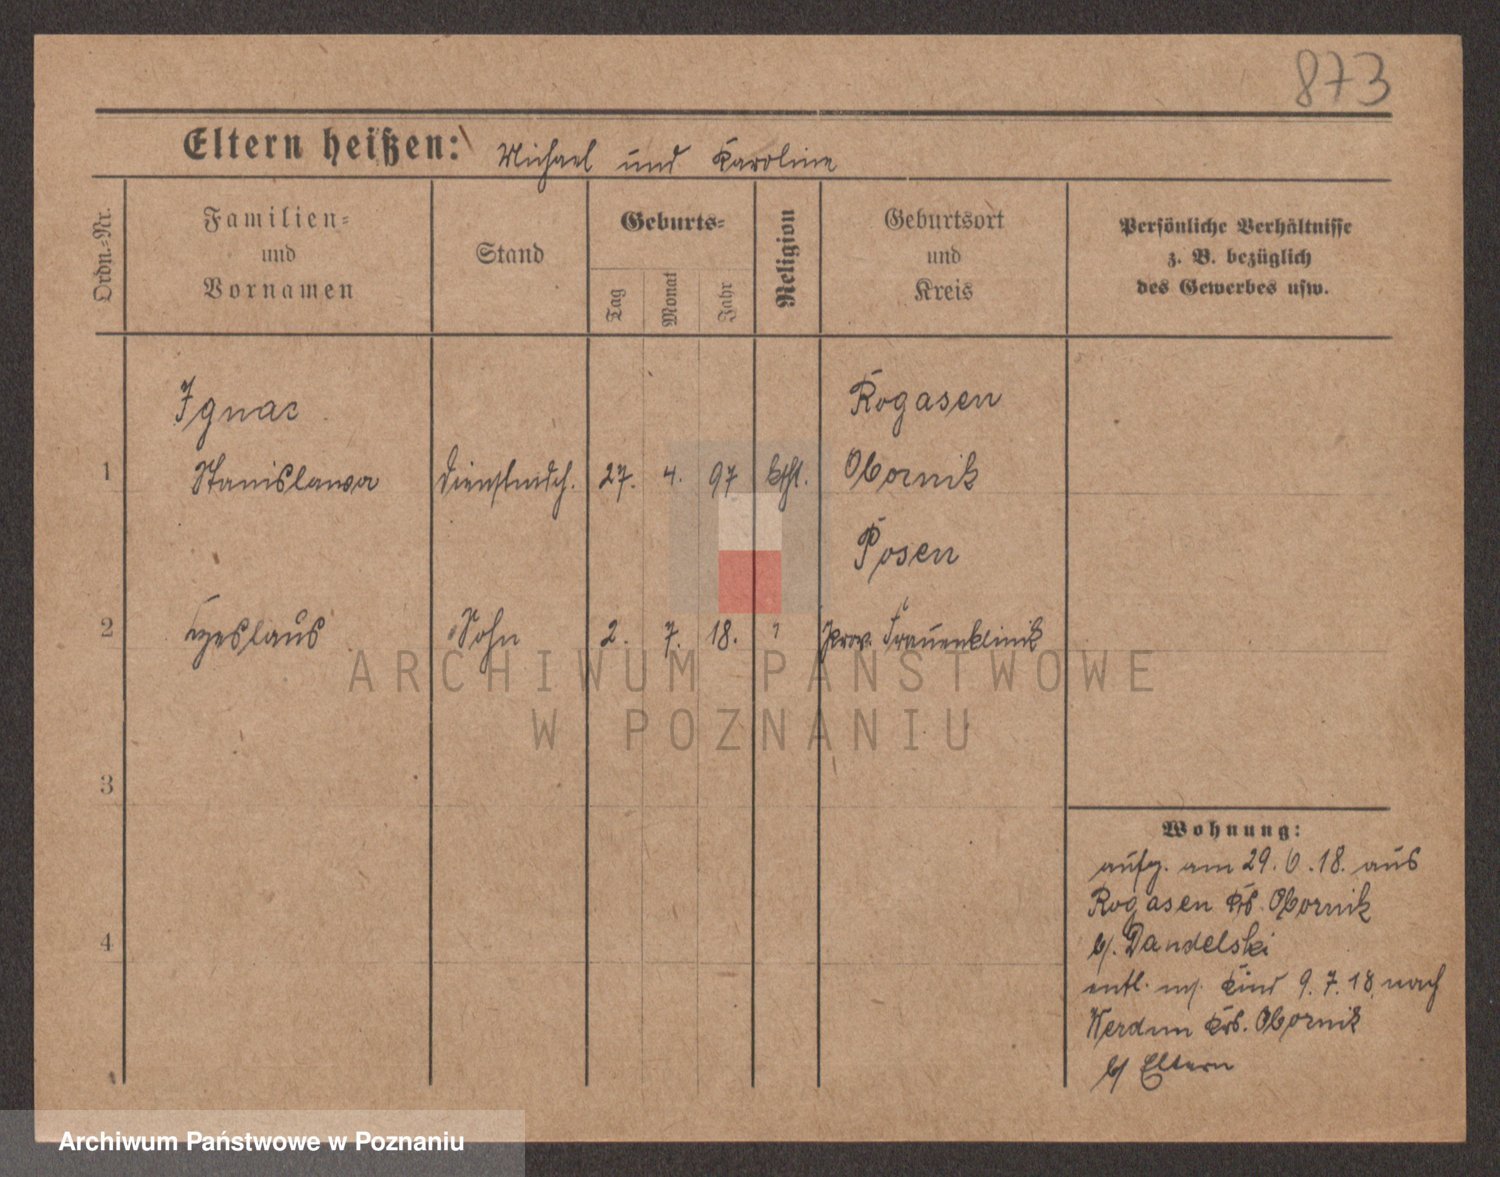 873
Eltern heißen: Michael und Karoline
Ordn.=Nr.
Familien=
und
Vornamen
Stand
Geburts=
Tag
Monat
Jahr
Religion
Geburtsort
und
Kreis
Persönliche Verhältnisse
z. B. bezüglich
des Gewerbes usw.
Ignac
Rogasen
1 Stanislawa Dienstmdch. 27. 4. 97 kthl. Obornik
Posen
2 Czeslaus Sohn 2. 7. 18. Prov. Frauenklinik
3
4
Wohnung:
aufg. am 29.6.18. aus
Rogasen Krs. Obornik
b/. Dandelski
entl. m/. Kind 9.7.18. nach
Werdum Krs. Obornik
b/ Eltern
ARCHIWUM PAŃSTWOWE
W POZNANIU
Archiwum Państwowe w Poznaniu